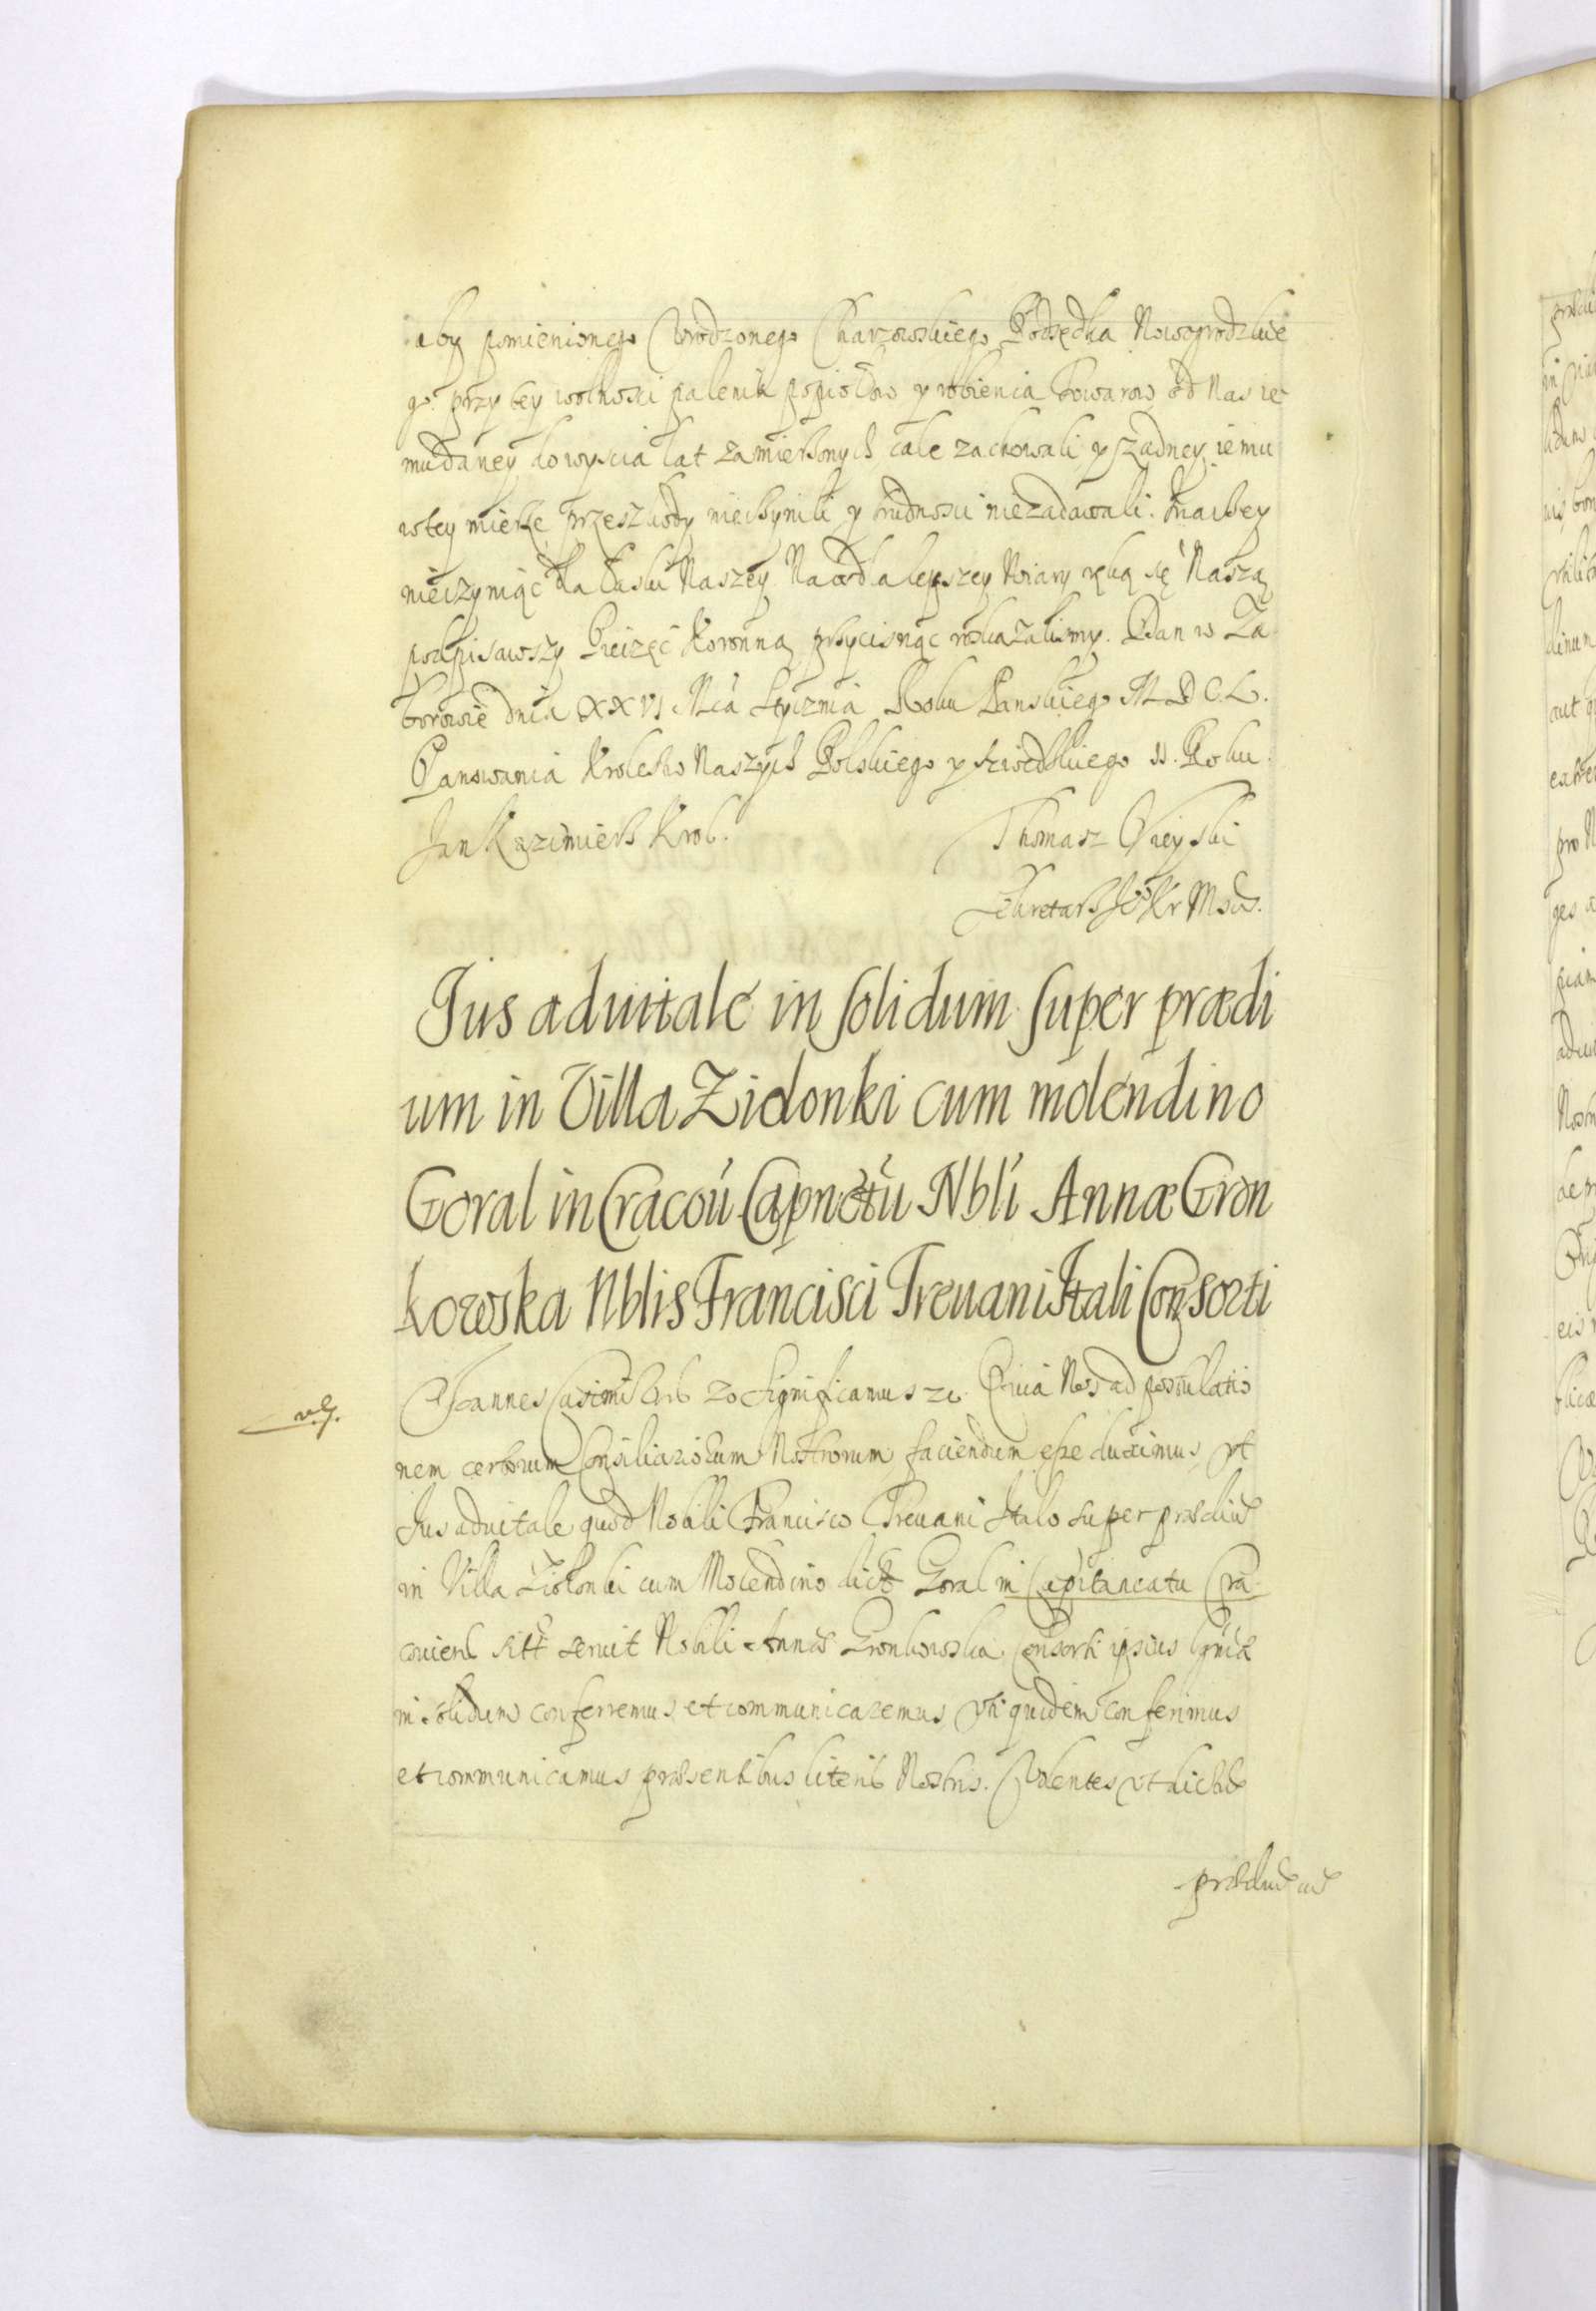 aby pomienionego Vrodzonego Charzowskiego Podsędka Nowogrodzkie
go przy tey wolnosci palenia popiołow y robienia towarow od Nas ie
mu daney do wyscia lat zamierzonych cale zachowali y żadney iemu
w tey mierze przeszkody nieczynili y trudnosci niezadawali. Inaczey
nieczyniąc dla łaski Naszey Na co dla lepszey Wiary ręką się Naszą
podpisawszy Pieczęć Koronną przycisnąc rozkazalismy. Dan w Za
borowie dnia XXVI Mca Stycznia Roku Panskiego MDCL.
Panowania Krolestw Naszych Polskiego y Szwedzkiego II. Roku.
Jan Kazimierz Krol.
Thomasz Vieyski
Sekretarz Jo Kr Msci.
Jus aduitale in solidum super prædi
um in Villa Zidonki cum molendino
Goral in Cracou Capnetu Nbli Annæ Gron
kowska Nblis Francisci Treuani Itali Consorti
Joannes Casimirus &c Significamus &c. Quia Nos ad postulatio
nem certorum Consiliariorum Nostrorum faciendum esse duximus, vt
Jus aduitale quod Nobili Francisco Treuani Italo super prædium
in Villa Zidonki cum Molendino dicto Goral in Capitaneatu Cra
couien sitt seruit Nobili Annæ Gronkowska Consorti ipsius
in solidum conferremus et communicaremus, vti quidem conferimus
et communicamus præsentibus literis Nostris. Volentes vt dictum
prædium